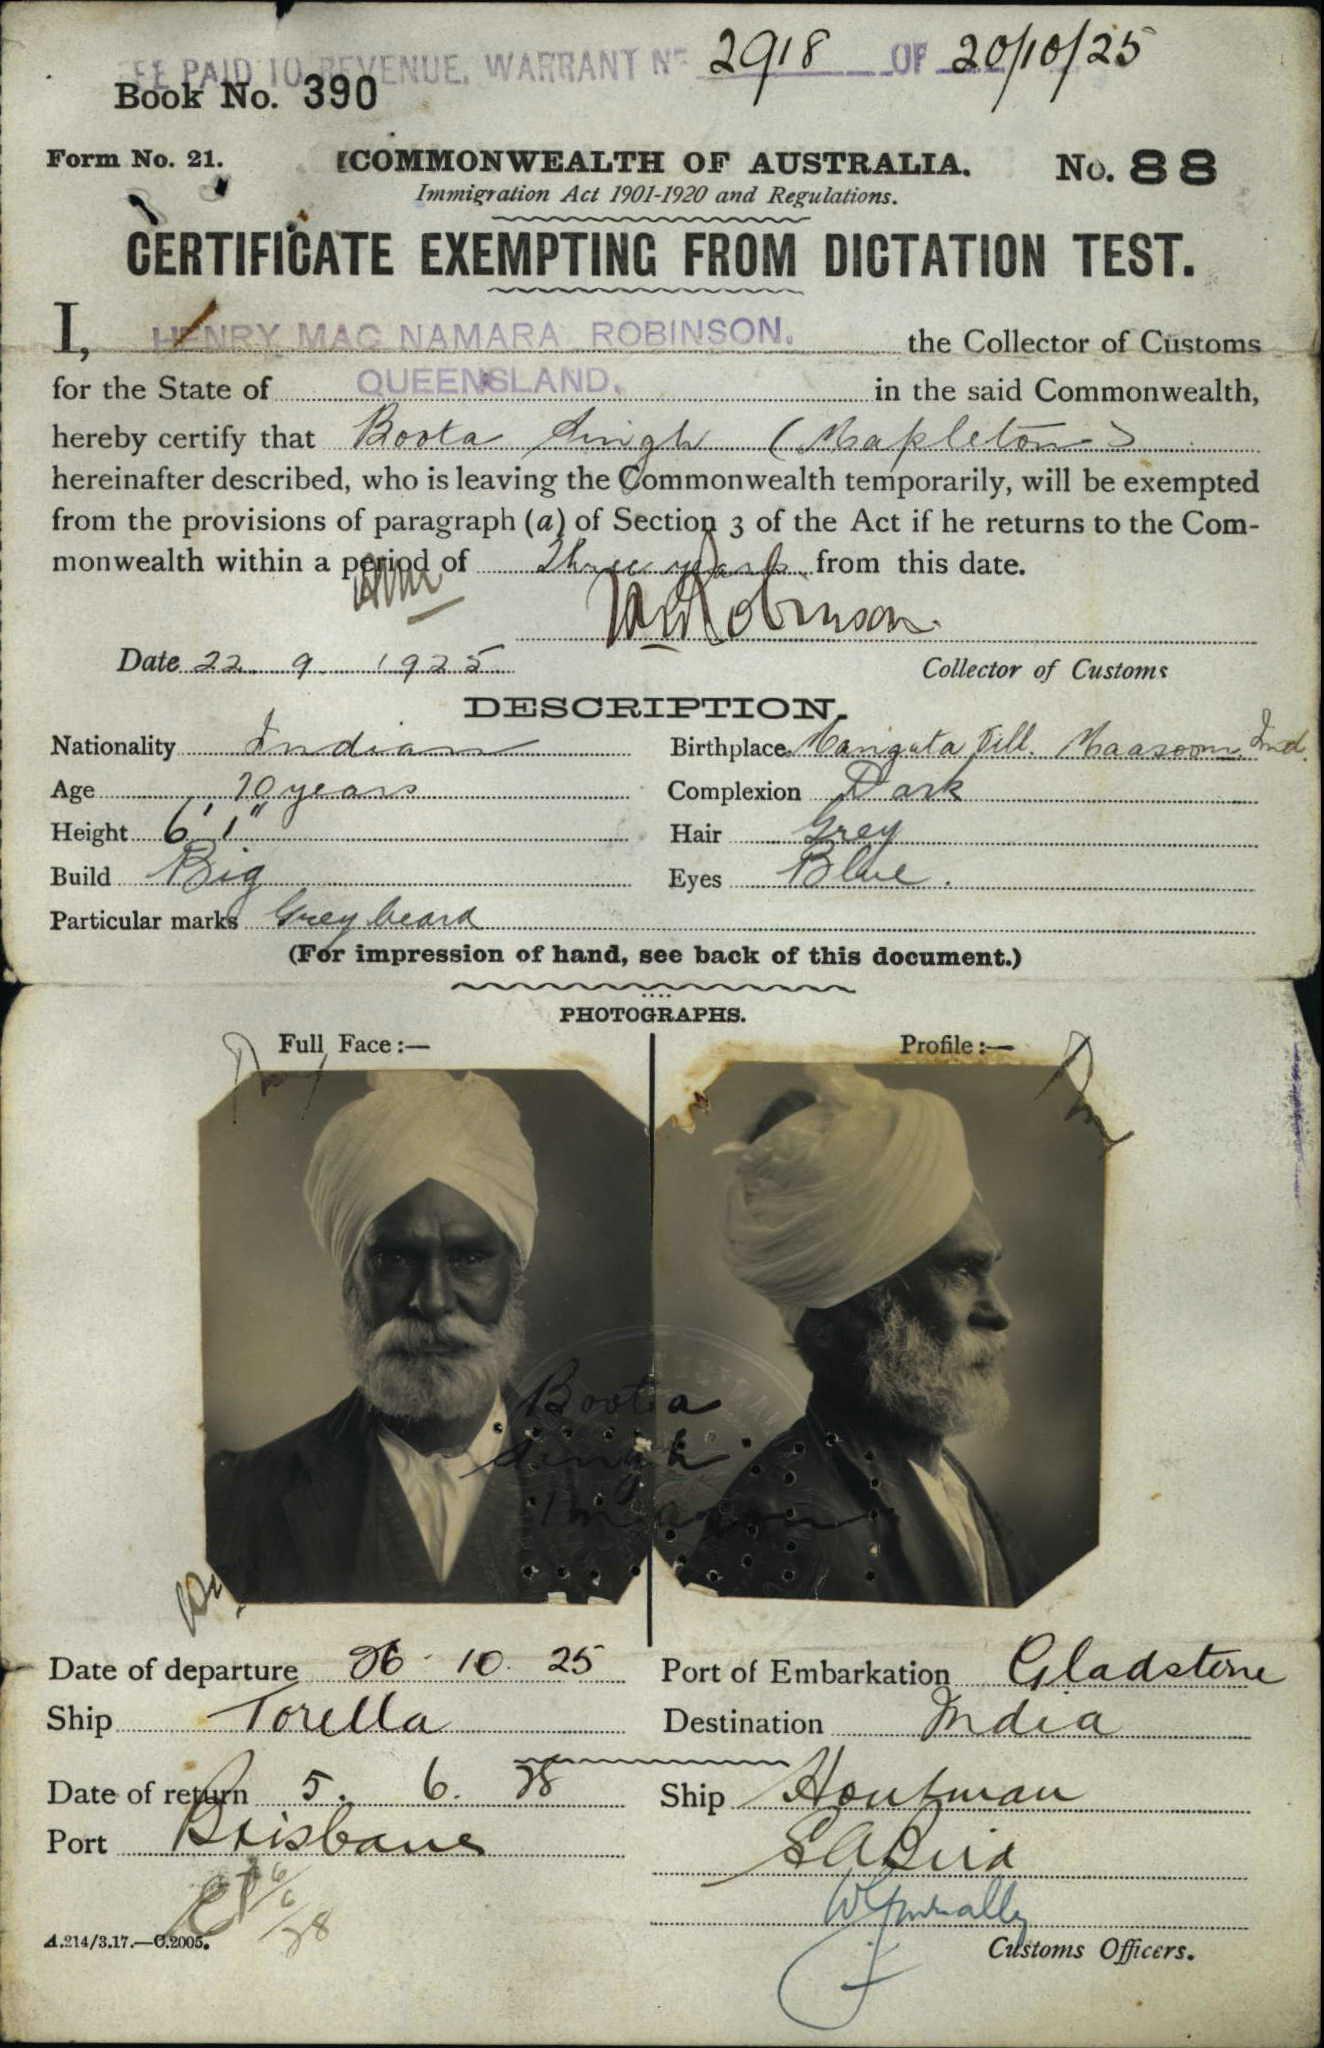 FEE PAID TO REVENUE. WARRANT No 2918 OF 20/10/25
Book No. 390
Form No. 21. COMMONWEALTH OF AUSTRALIA. No. 88
Immigration Act 1901-1920 and Regulations.
CERTIFICATE EXEMPTING FROM DICTATION TEST.
I, HENRY MAC NAMARA ROBINSON. the Collector of Customs
for the State of QUEENSLAND. in the said Commonwealth,
hereby certify that Boota Singh (Mapleton)
hereinafter described, who is leaving the Commonwealth temporarily, will be exempted
from the provisions of paragraph (a) of Section 3 of the Act if he returns to the Com-
monwealth within a period of Three years from this date.
Robinson
Date 22. 9. 1925 Collector of Customs
DESCRIPTION.
Nationality Indian Birthplace Ind.
Age 70 years Complexion Dark
Height 6' 1" Hair Grey
Build Big Eyes Blue.
Particular marks Grey beard
(For impression of hand, see back of this document.)
PHOTOGRAPHS.
Full Face:— Profile:—
Boota
Singh
Date of departure 26. 10. 25 Port of Embarkation Gladstone
Ship Torella Destination India
Date of return 5. 6. 28 Ship Houtman
Port Brisbane
6/6/28
A.214/3.17.—C.2005. Customs Officers.